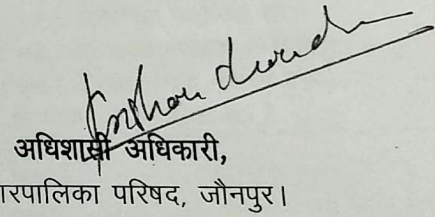 अधिशासी अधिकारी,
रपालिका परिषद, जौनपुर।